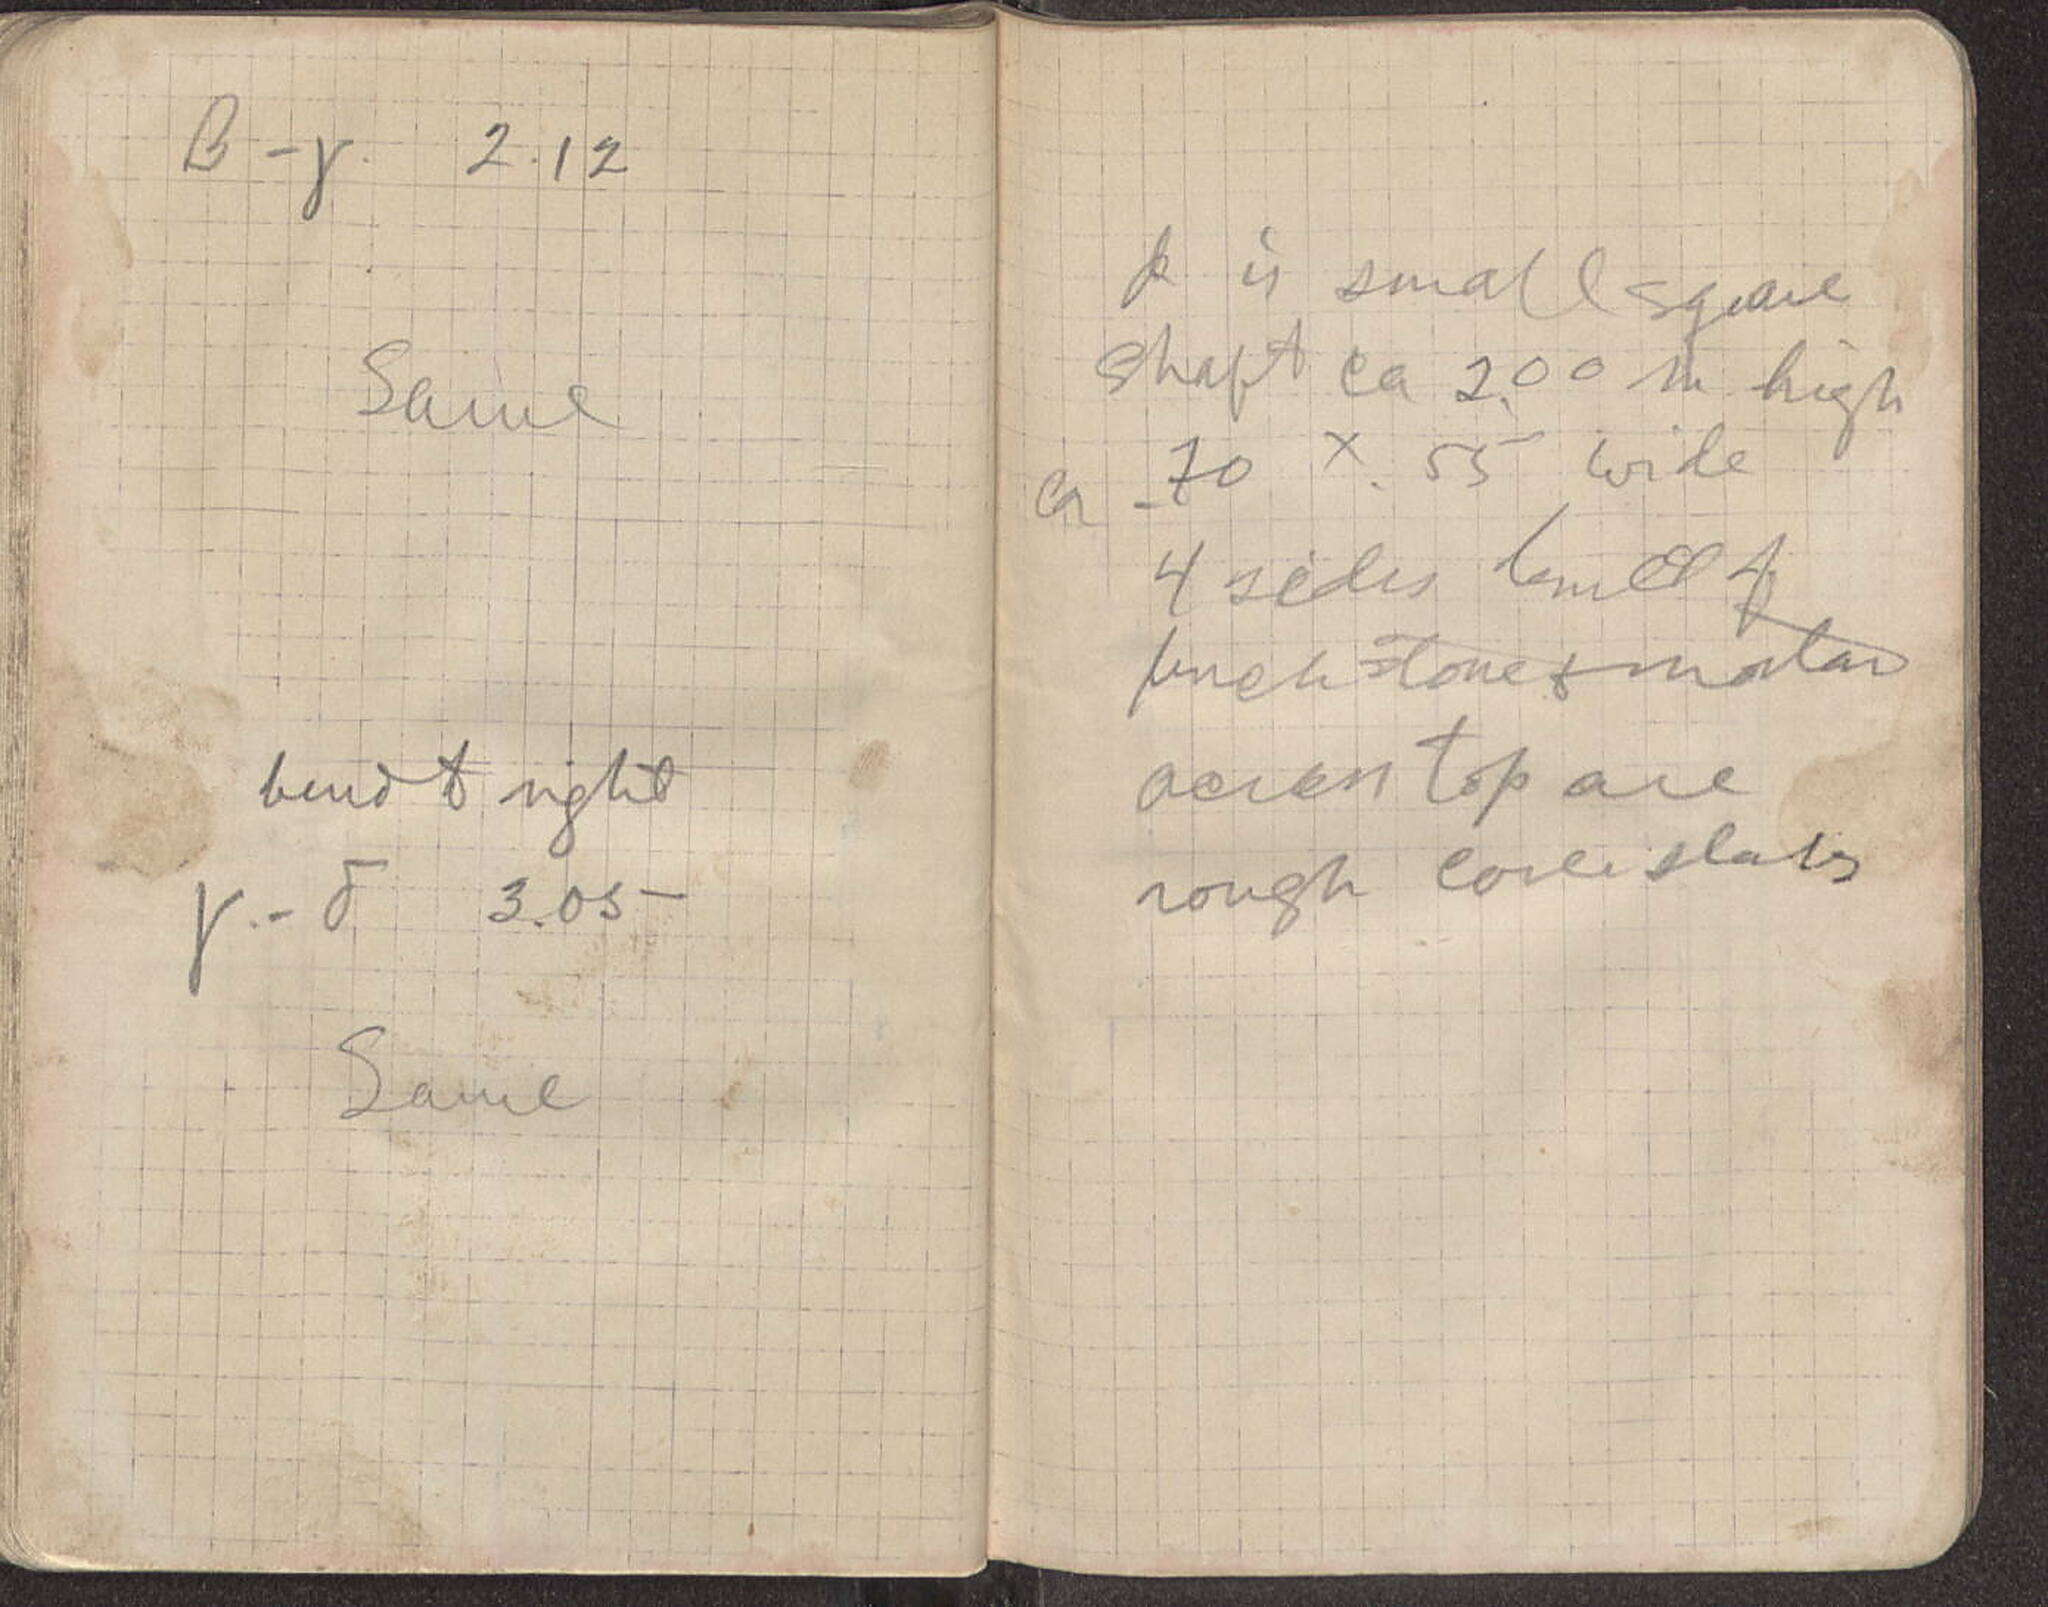 β - γ. 2.12
Same
bend to right
γ. - δ 3.05
Same
k is small square
shaft ca 2.00 m high
ca .70 x .55 wide
4 sides built of
stone & mortar
across top are
rough cover slabs